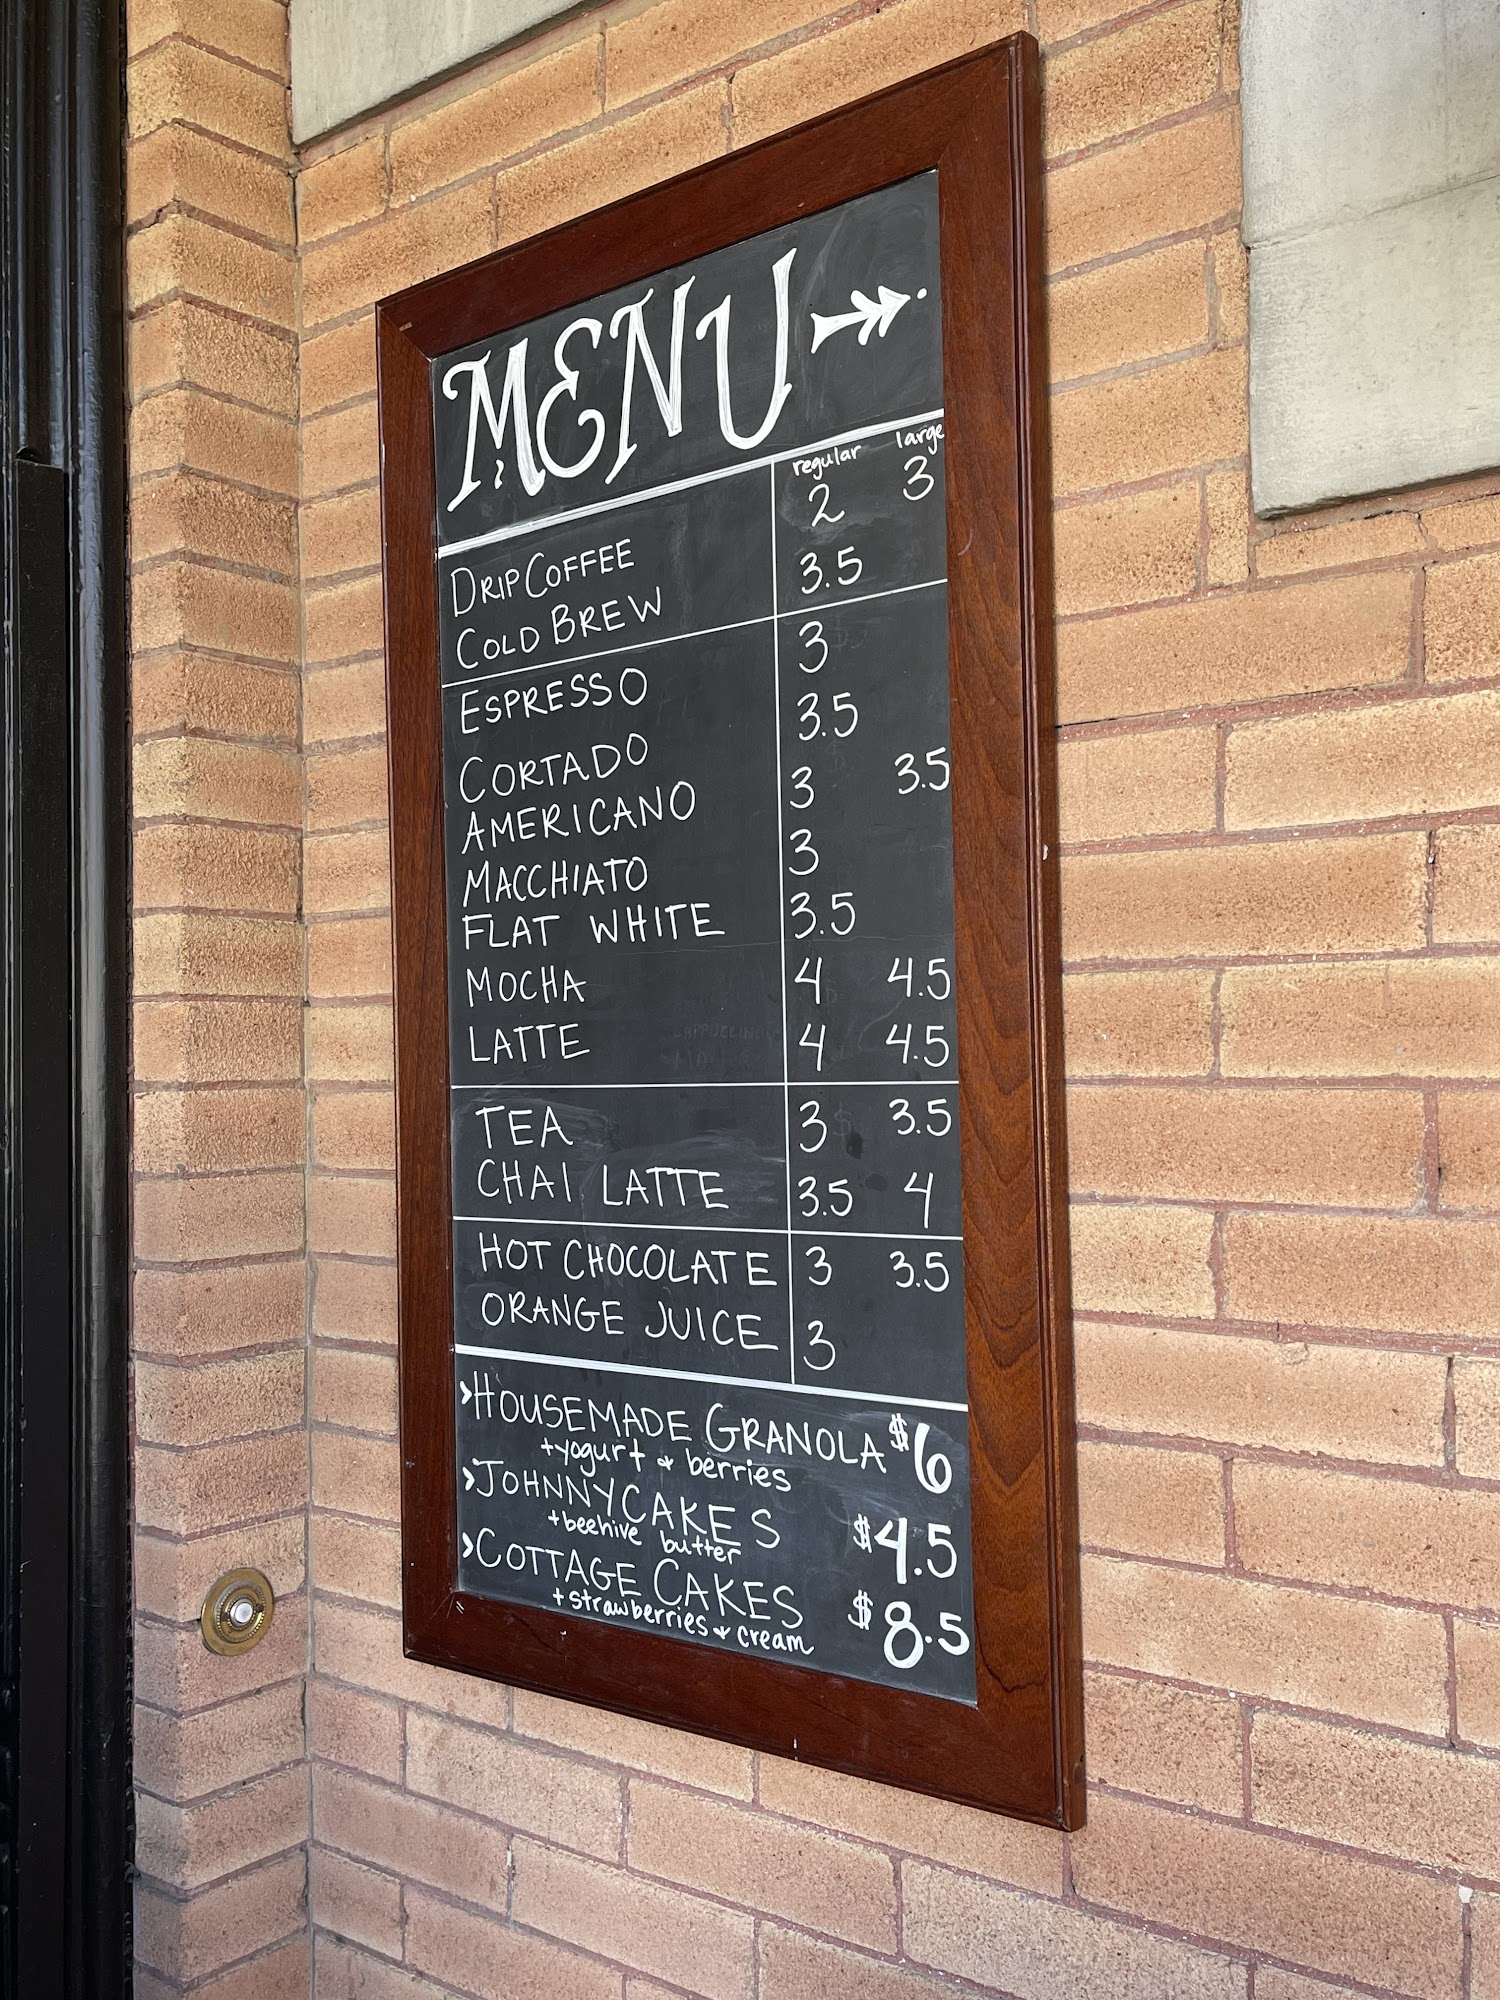 MENU
regular large
DRIP COFFEE 2 3
COLD BREW 3.5
ESPRESSO 3
CORTADO 3.5
AMERICANO 3 3.5
MACCHIATO 3
FLAT WHITE 3.5
MOCHA 4 4.5
LATTE 4 4.5
TEA 3 3.5
CHAI LATTE 3.5 4
HOT CHOCOLATE 3 3.5
ORANGE JUICE 3
HOUSEMADE GRANOLA $6
+yogurt & berries
JOHNNYCAKES $4.5
+beehive butter
COTTAGE CAKES $8.5
+strawberries & cream